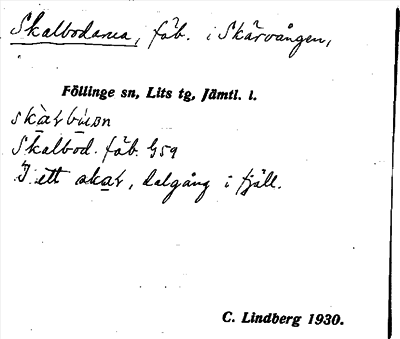 Skalbodarna, fäb. i Skärvången,
Föllinge sn, Lits tg, Jämtl. l.
Skalbod. fäb. G59
I ett skaɫ, dalgång i fjäll.
C. Lindberg 1930.